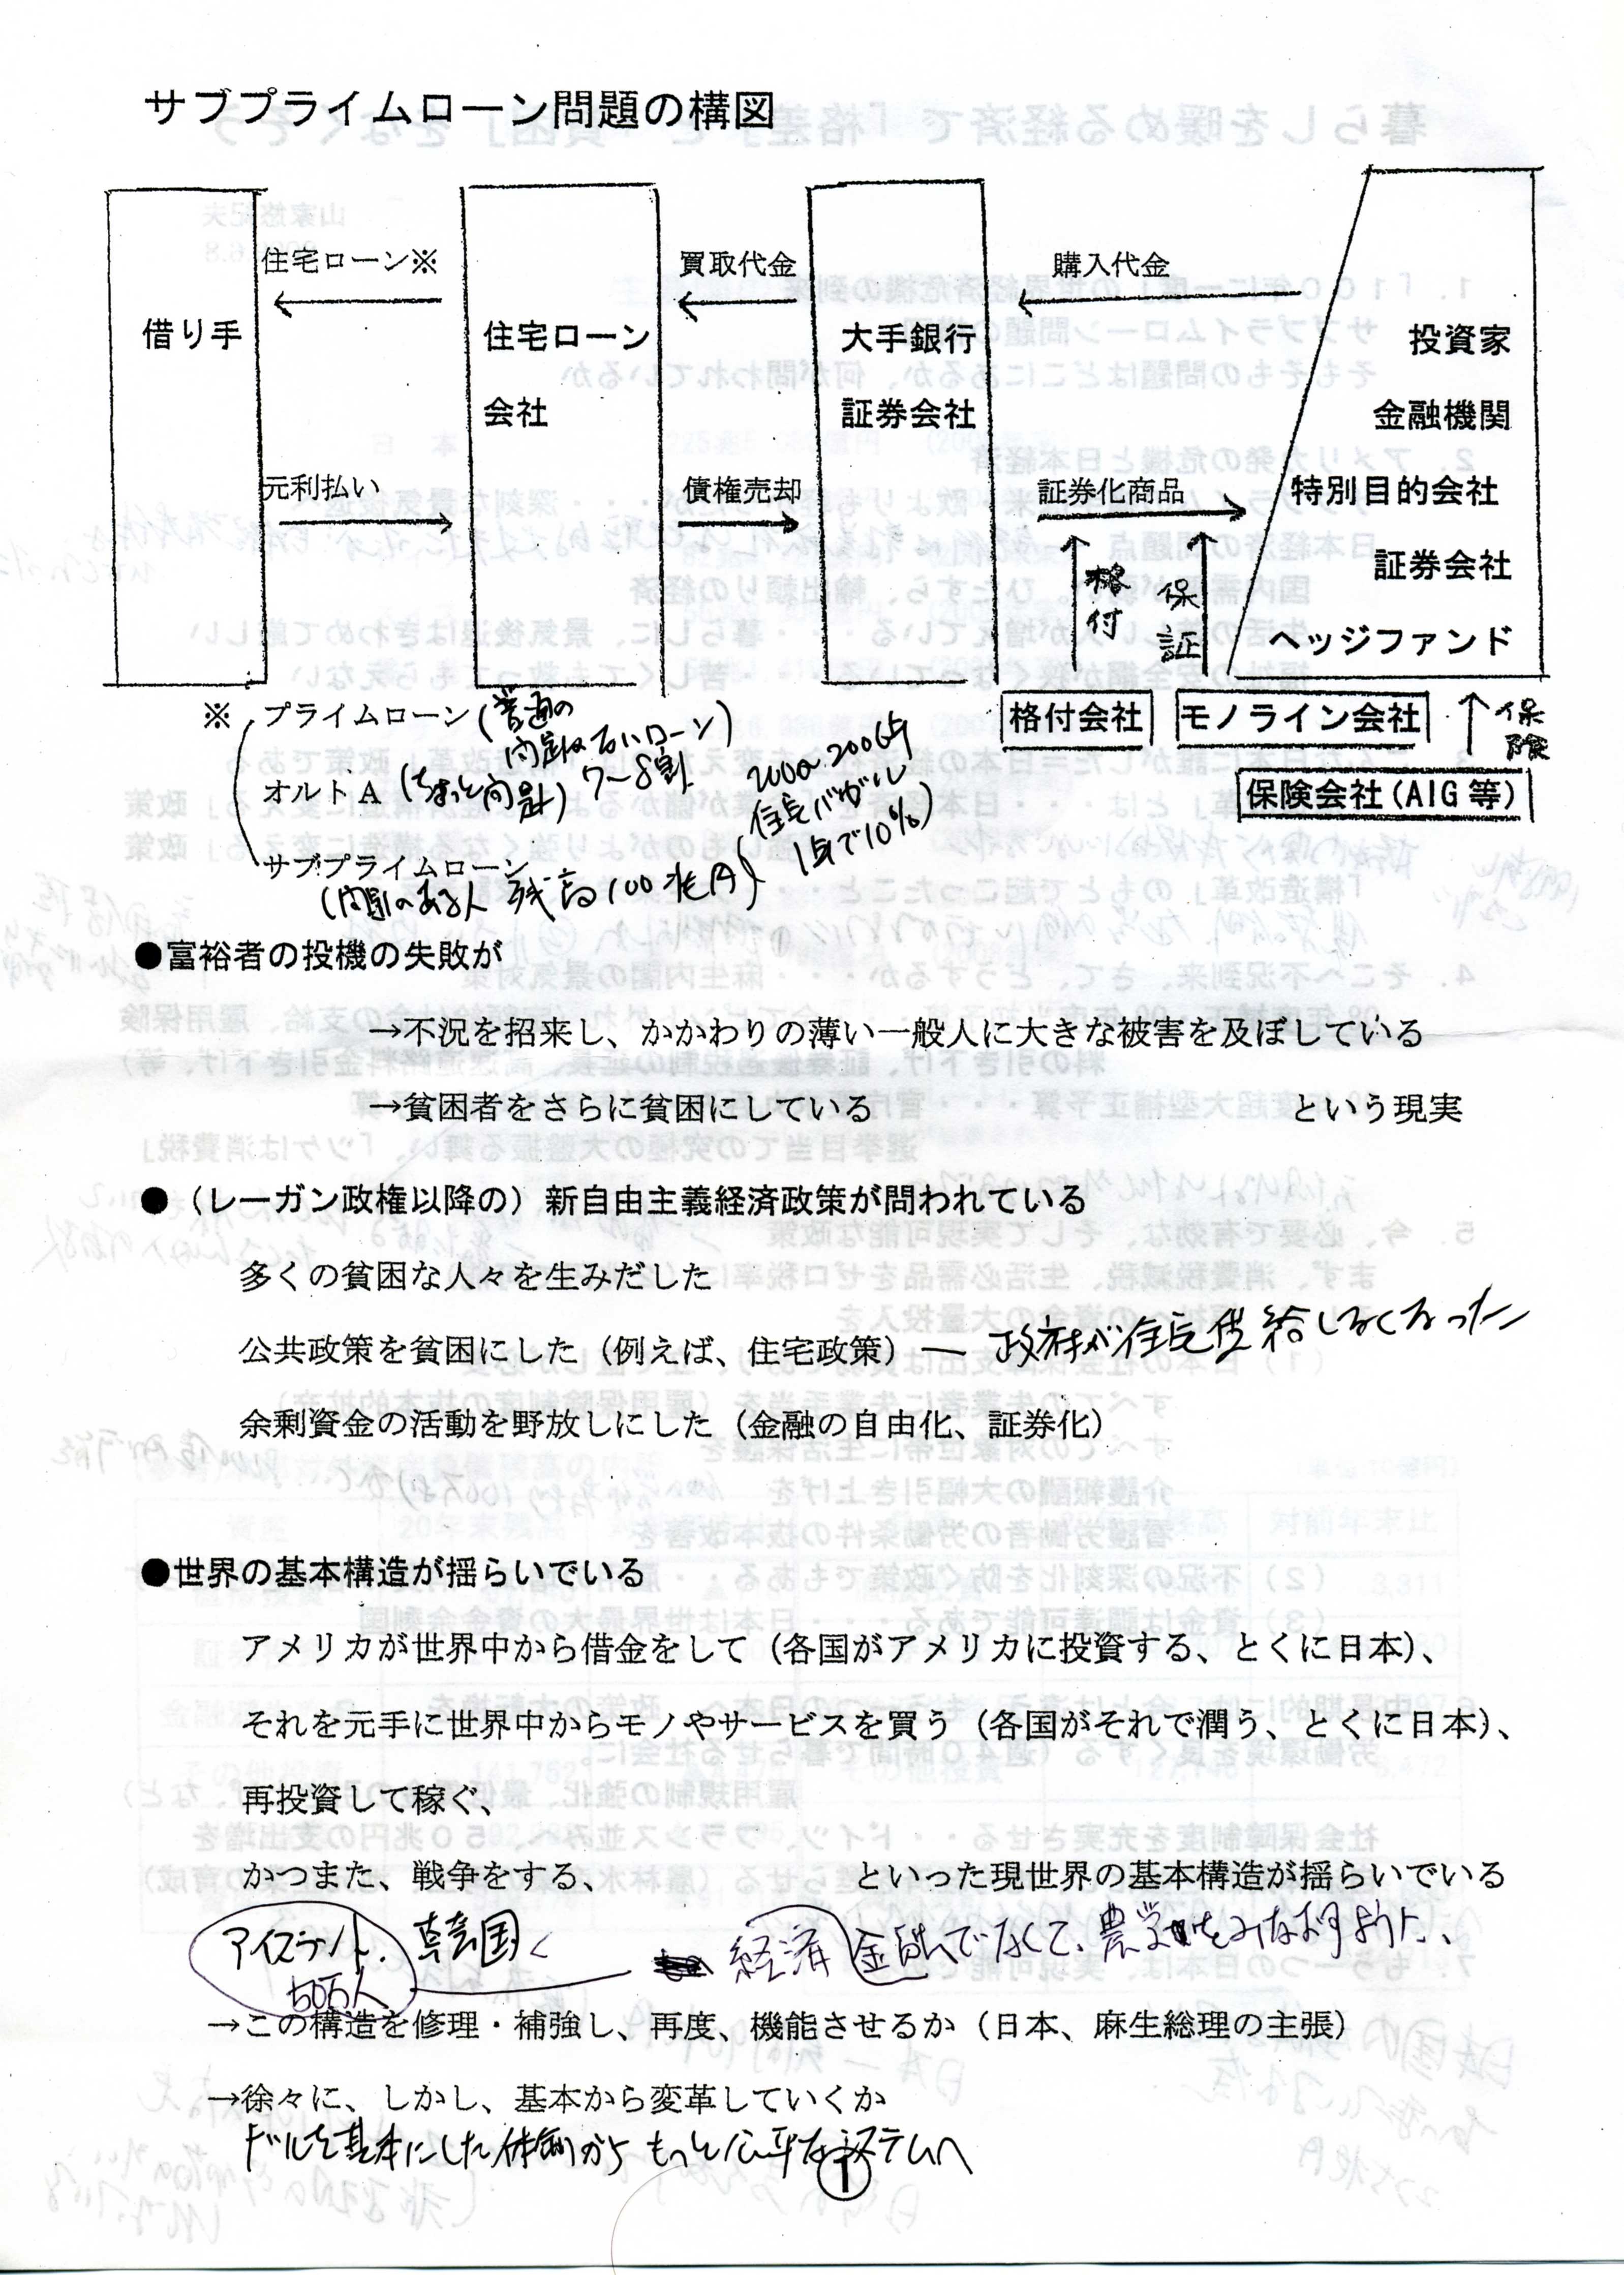 サブプライムローン問題の構図
住宅ローン※
買取代金
購入代金
借り手
住宅ローン
会社
大手銀行
証券会社
投資家
金融機関
特別目的会社
証券会社
ヘッジファンド
元利払い
債権売却
証券化商品
格付
保証
格付会社
モノライン会社
保険
保険会社(AIG等)
※ プライムローン(普通の
問題のないローン)
7〜8割
オルトA(ちょっと問題)
サブプライムローン
(問題のある人 残高100兆円)
住宅バブル
1年で10%)
●富裕者の投機の失敗が
→不況を招来し、かかわりの薄い一般人に大きな被害を及ぼしている
→貧困者をさらに貧困にしている という現実
●(レーガン政権以降の)新自由主義経済政策が問われている
多くの貧困な人々を生みだした
公共政策を貧困にした(例えば、住宅政策)― 政府が住宅供給しなくなった
余剰資金の活動を野放しにした(金融の自由化、証券化)
●世界の基本構造が揺らいでいる
アメリカが世界中から借金をして(各国がアメリカに投資する、とくに日本)、
それを元手に世界中からモノやサービスを買う(各国がそれで潤う、とくに日本)、
再投資して稼ぐ、
かつまた、戦争をする、 といった現世界の基本構造が揺らいでいる
アイスランド. 韓国
50万人
経済 金融でなくて、農業をみなおすように、
→この構造を修理・補強し、再度、機能させるか(日本、麻生総理の主張)
→徐々に、しかし、基本から変革していくか
ドルを基本にした体制から もっと公平なシステムへ
①